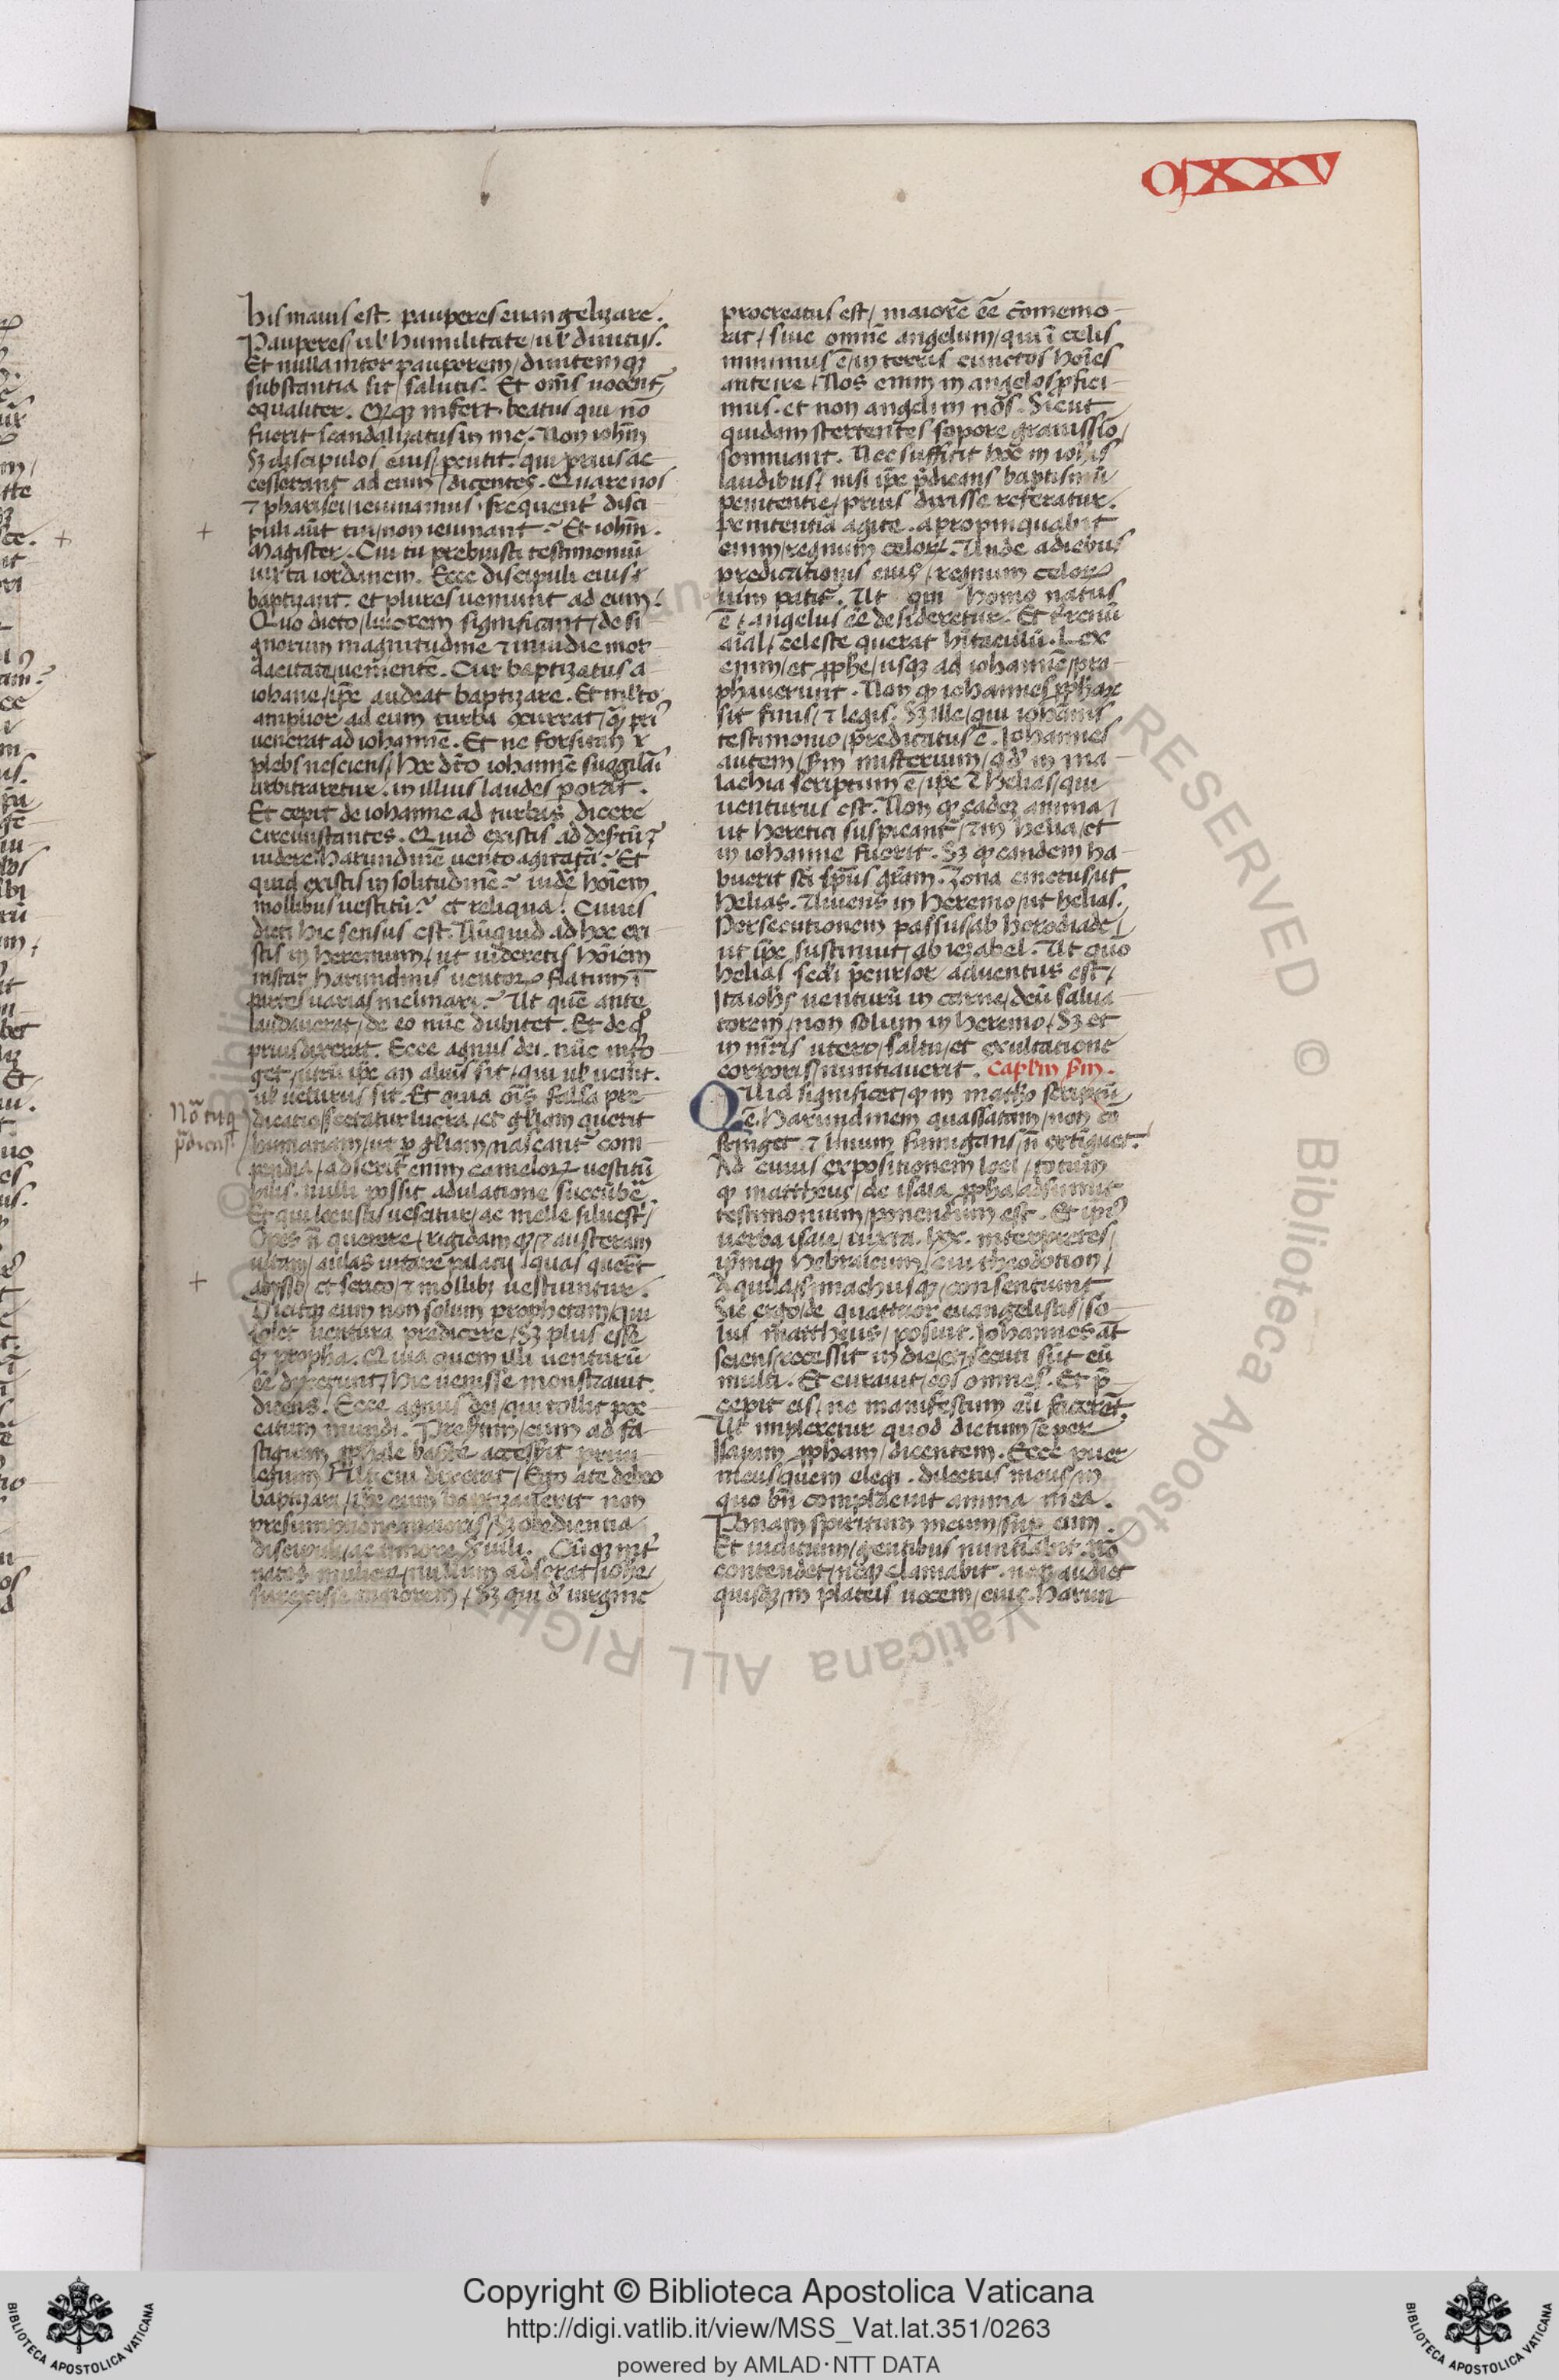 CXXV
his maius est. pauperes euangelizare.
Pauperes, ul' humilitate, ul' diuitijs.
Et nulla inter pauperem, diuitemq3
substantia sit, salutis. Et om̅s uocent̅
equaliter. Q̅q3 infert. beatus qui no̅
fuerit scandalizatus in me. Non ioh̅m
S3 discipulos eius, p̅cutit. qui prius ac-
cesserant ad eum, dicentes. Quare nos
⁊ pharisei, ieiunamus, frequent̅ disci-
puli au̅t tui, non ieiunant? Et ioh̅m.
Magister. Cui tu prebuisti testimoniu̅
iuxta iordanem. Ecce discipuli eius,
baptizant. et plures ueniunt ad eum.
Quo dicto, liuorem significant, de si-
gnorum magnitudine ⁊ inuidie mor-
dacitate, ueniente̅. Cur baptizatus a
iohane, ip̅e audeat baptizare. Et m̅lto
amplior ad eum turba
uenerat ad iohanne̅. Et ne forsitan
plebs nesciens, hoc d̅to iohanne̅ suggila̅i
arbitraretur. in illius laudes
Et cepit de iohanne ad turbas dicere
circumstantes. Quid existis ad des̅tu̅?
uidere? harundine̅ uento agitata̅? Et
quid existis in solitudine̅? uide̅ ho̅iem
mollibus uestitu̅? et reliqua. Cuius
dicti hic sensus est. Nu̅quid ad hoc exi-
stis in heremum, ut uideretis ho̅iem
instar harundinis uentor̅ flatum i̅
partes uarias inclinari? Ut que̅ ante
laudauerat, de eo nu̅c dubitet. Et de q̅
prius dixerat. Ecce agnus dei. nu̅c int̅ro-
get, utru̅ ip̅e an alius sit, qui ul' uenit.
ul' uenturus sit. Et quia om̅s falsa pre-
dicatio, sectatur lucra, et gl̅iam querit
humanam, ut p̅ gl̅iam, nascant̅ com-
pendia, adserit enim camelor̅ uestitu̅
pilis. nulli possit adulatione succu̅be̅.
Et qui locustis uescitur, ac melle siluest̅,
Opes n̅ querere, rigidam q3 ⁊ austeram
uitam, aulas uitare palatij, quas quer̅t
abysso, et serico, ⁊ mollib3 uestiuntur.
Dicitq3 eum non solum prophetam, qui
solet uentura predicere, S3 plus esse
q̅ propha. Quia quem illi uenturu̅
e̅e dixerunt, hic uenisse monstrauit.
dicens. Ecce agnus dei, qui tollit pec-
catum mundi. Presertim, cum ad fa-
stigium
legium. Ut cui dixerat, Ego a te debeo
baptizari, ip̅e eum baptizauerit non
presumptione maioris, S3 obedientia
discipuli, ac timore s̅uili. Cu̅q3 int̅
natos mulier̅, nullum adserat, ioh̅e,
surrexisse maiorem, S3 qui d̅ uirgine
No̅ tu q
p̅dicas
procreatus est, maiore̅ e̅e co̅memo-
rat, siue omne̅ angelum, qui i̅ celis
minimus e̅, in terris cunctos ho̅ies
anteire, Nos enim in angelos p̅fici-
mus. et non angeli in no̅s. Sicut
quidam stertentes sopore grauissi̅o,
somniant. Nec sufficit hoc in ioh̅is
laudibus, nisi ip̅e p̅dicans baptismu̅
penitentie, prius dixisse referatur.
penitentia̅ agite. apropinquabit
enim, regnum celor̅. Unde a diebus
predicationis eius, regnum celor̅
uim patit̅. Ut qui homo natus
e̅, angelus e̅e desideretur. Et t̅renu̅
a̅i̅al, celeste querat h̅itaculu̅. Lex
enim, et p̅ph̅e, usq3 ad iohanne̅, pro-
phauerunt. Non q̅ iohannes p̅ph̅ar̅
sit finis, ⁊ legis. S3 ille, qui ioh̅annis
testimonio, predicatus e̅. Iohannes
autem, s̅m misterium, q̅d in ma-
lachia scriptum e̅, ip̅e e̅ helias, qui
uenturus est. Non q̅ eade3 anima,
ut heretici suspicant̅, ⁊ in helia, et
in iohanne fuerit. S3 q̅ eandem ha-
buerit sc̅i sp̅us gr̅am. Zona cinctus ut
helias. Uiuens in heremo, ut helias.
Persecutionem passus, ab herodiade,
ut ip̅e sustinuit, ab iezabel. Ut quo̅
helias sed̅i p̅cursor aduentus est,
Ita ioh̅s uenturu̅ in carne, deu̅ salua-
torem, non solum in heremo, S3 et
in m̅ris utero, saltu, et exultatione
corporis, nuntiauerit. Cap̅lm s̅m.
Quid significet, q̅ in math̅o scriptu̅
e̅. harundinem quassatam, non co̅-
fringet. ⁊ linum fumigans, n̅ extinguet.
Ad cuius expositionem loci, totum
q̅ mattheus, de isaia p̅pha, adsumit
testimonium, ponendum est. Et ip̅i̅
uerba isaie, iuxta. lxx. interpretes,
ip̅mq3 hebraicum, cui theodotion,
Aquila, simachusq3, consentiunt
Sic ergo, de quattuor euangelistis, so-
lus mattheus, posuit. Iohannes a̅t
sciens, recessit inde, et secuti su̅t eu̅
multi. Et curauit, eos omnes. Et p̅-
cepit eis, ne manifestum eu̅ facere̅t,
Ut impleretur quod dictum e̅ per
Isaiam p̅pham, dicentem. Ecce puer
meus, quem elegi. dilectus meus, in
quo bn̅ complacuit anima mea.
Ponam spiritum meum, sup̅ eum.
Et iuditium, gentibus nuntiabit. no̅
contendet, neq3 clamabit. neq3 audiet
quisq3, in plateis uocem, eius. harun-
Copyright © Biblioteca Apostolica Vaticana
http://digi.vatlib.it/view/MSS_Vat.lat.351/0263
powered by AMLAD·NTT DATA
BIBLIOTECA APOSTOLICA VATICANA
BIBLIOTECA APOSTOLICA VATICANA